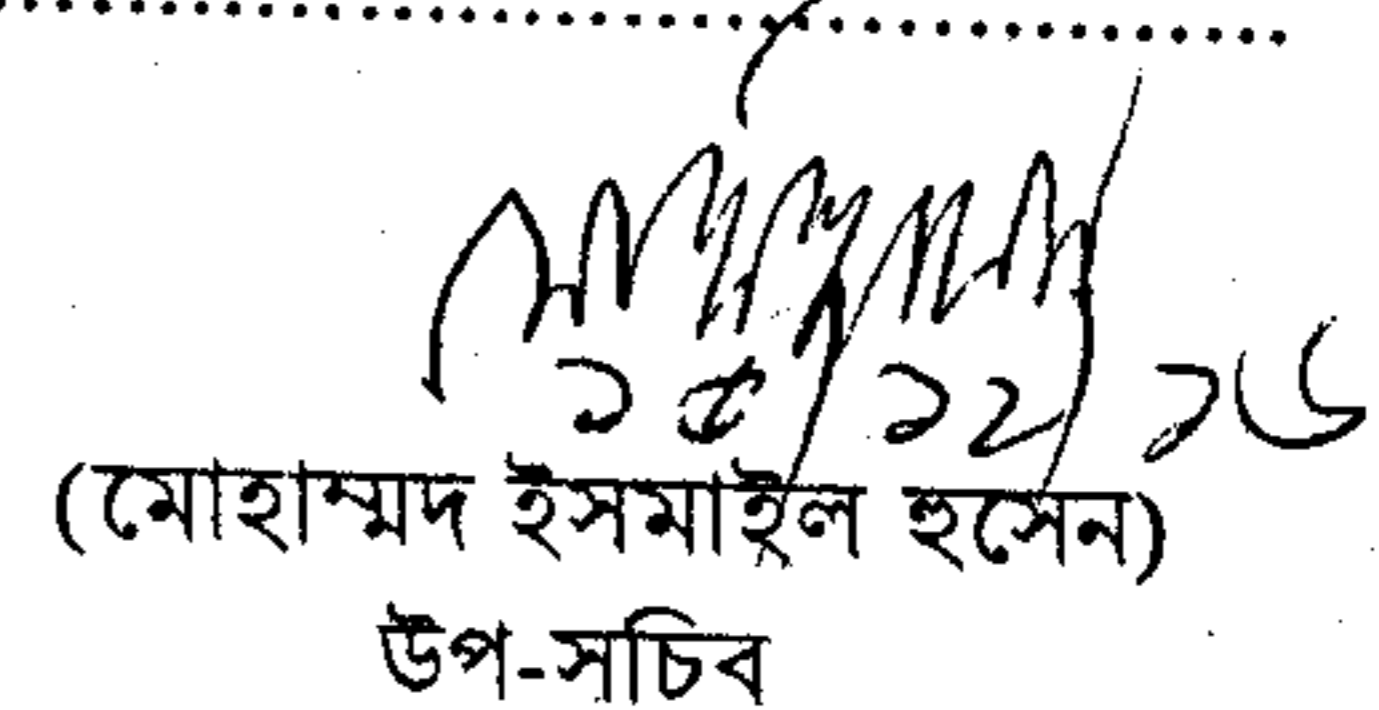 ১৫ ১২ ১৬
(মোহাম্মদ ইসমাইল হুসেন)
উপ-সচিব